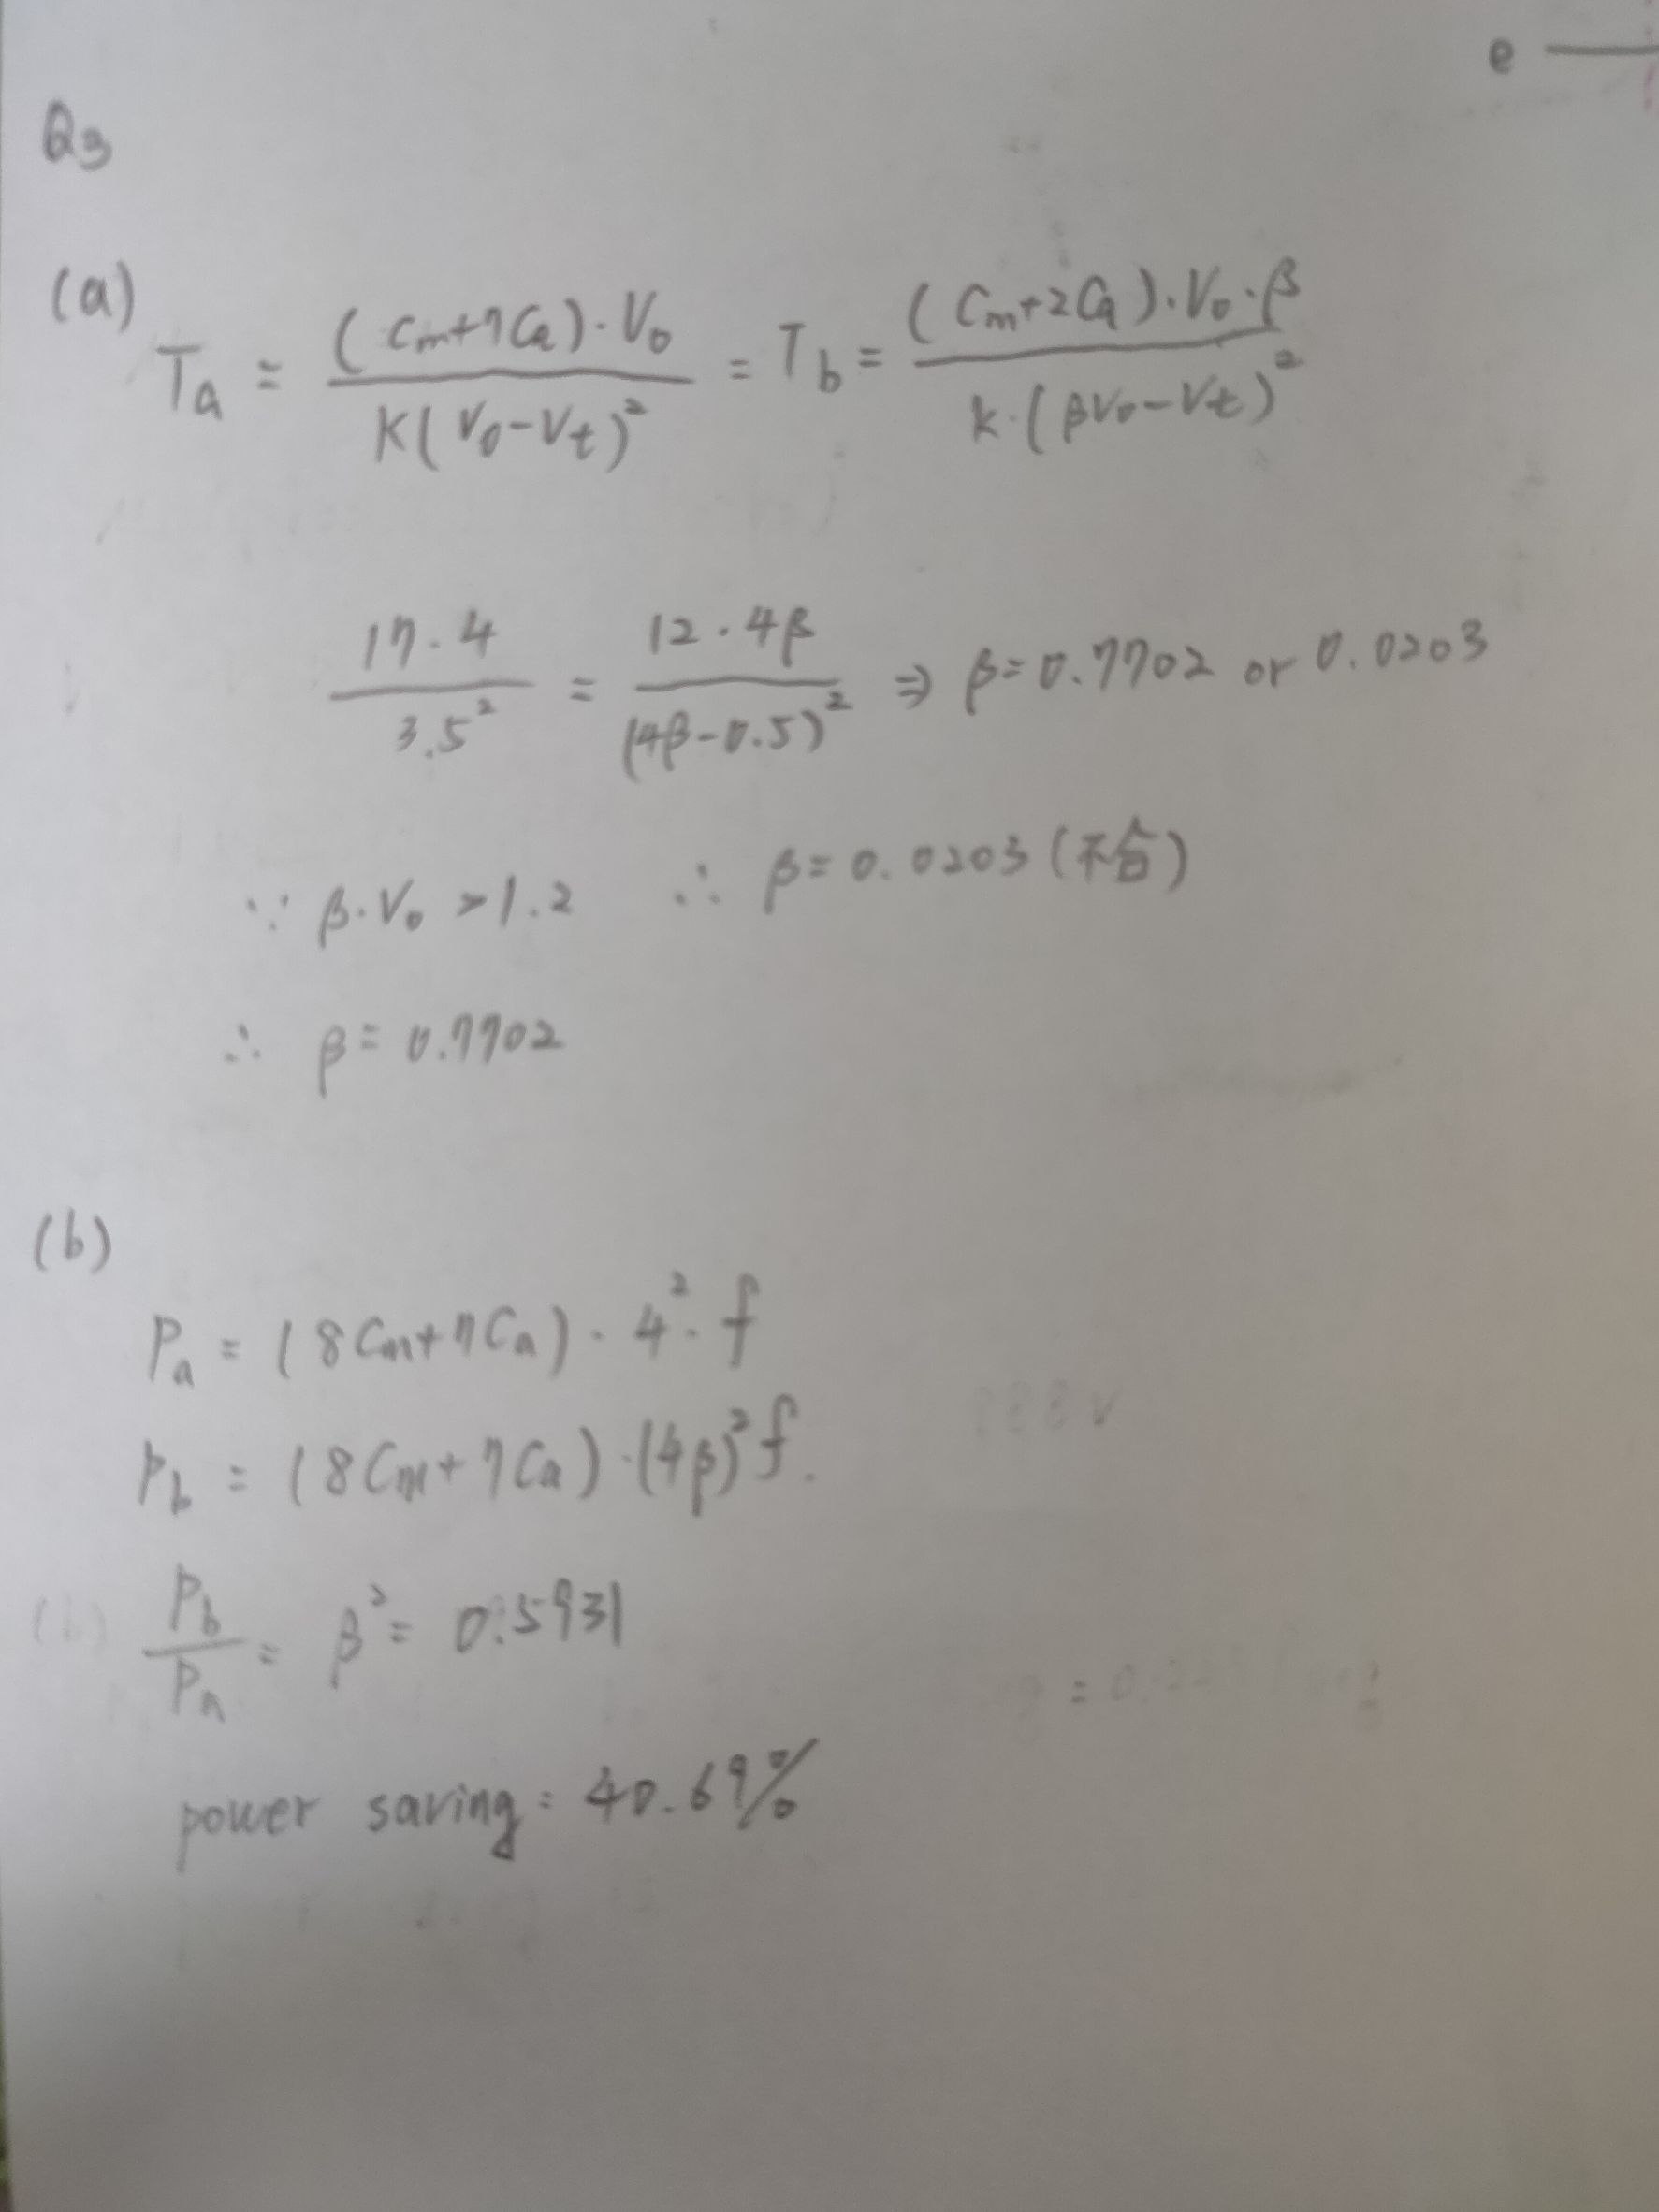 e
Q3
(a)
Ta = (Cm+7Ca)·V0 / K(V0-Vt)² = Tb = (Cm+2Ca)·V0·β / k·(βV0-Vt)²
17·4 / 3.5² = 12·4β / (4β-0.5)² ⇒ β=0.7702 or 0.0203
∵ β·V0 >1.2 ∴ β=0.0203 (不合)
∴ β=0.7702
(b)
Pa = (8Cm+7Ca)·4²·f
Pb = (8Cm+7Ca)·(4β)²f.
Pb / Pa = β² = 0.5931
power saving: 40.69%